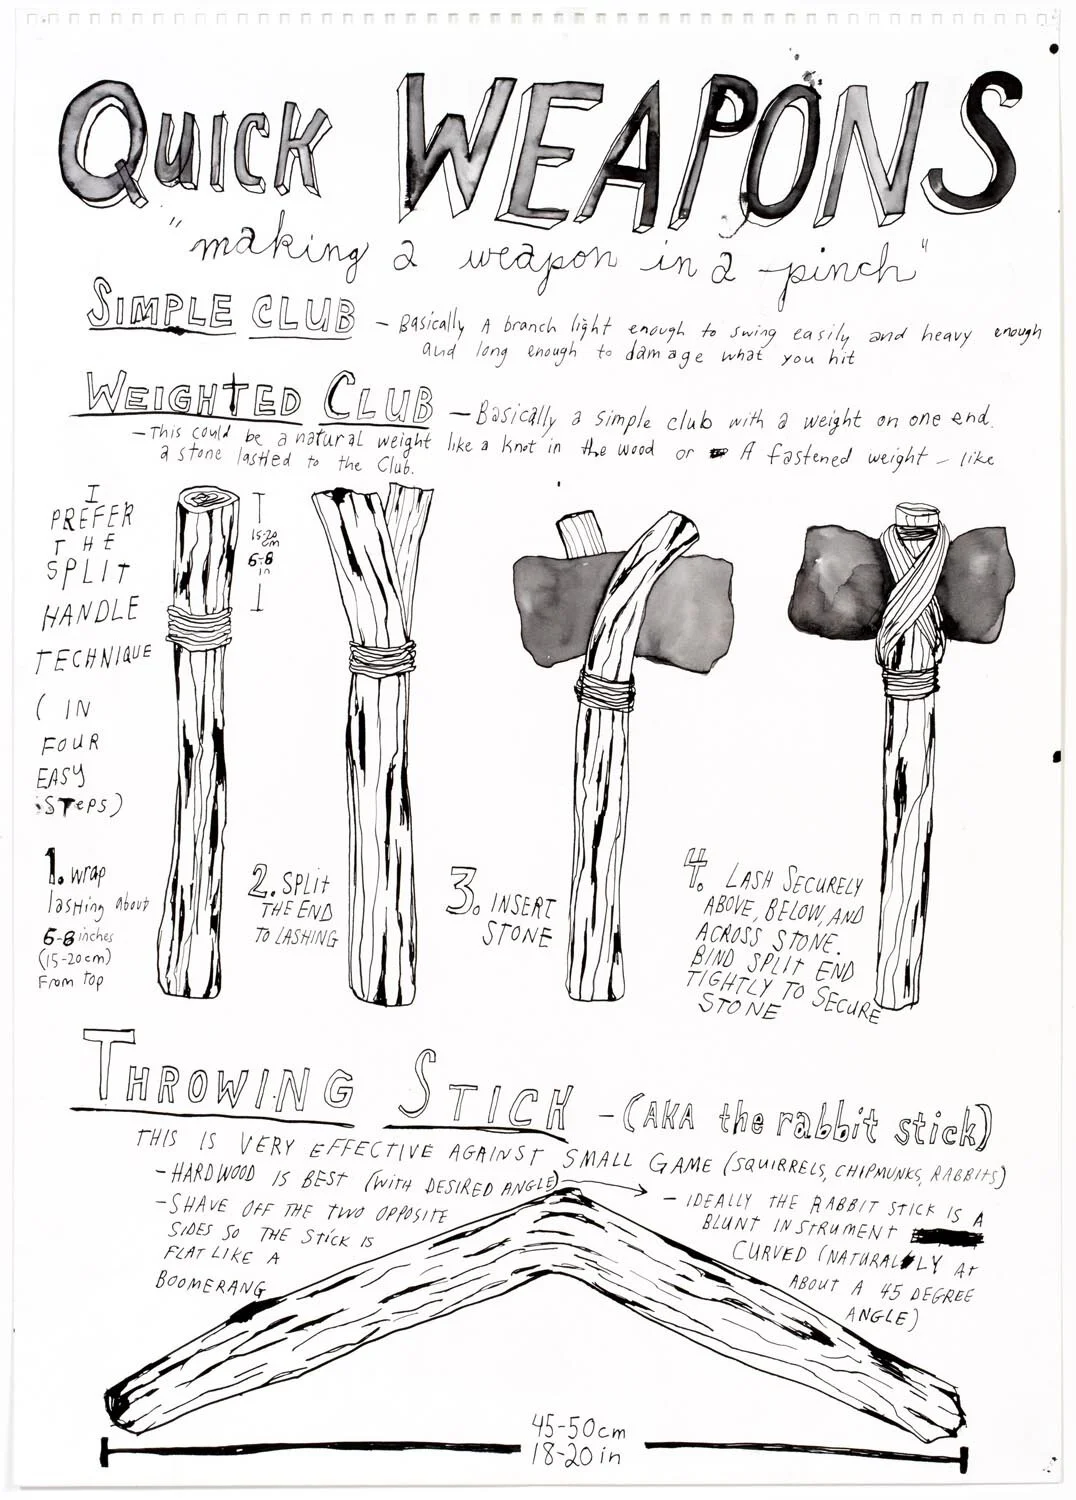 QUICK WEAPONS
"making a weapon in a pinch"
SIMPLE CLUB - Basically A branch light enough to swing easily and heavy enough
and long enough to damage what you hit
WEIGHTED CLUB - Basically a simple club with a weight on one end.
- This could be a natural weight like a knot in the wood or A fastened weight - like
a stone lashed to the Club.
I
PREFER
THE
SPLIT
HANDLE
TECHNIQUE
( IN
FOUR
EASY
STEPS)
15-20
cm
6-8
in
1. Wrap
lasHing about
6-8 inches
(15-20cm)
From top
2. SPLIT
THE END
TO LASHING
3. INSERT
STONE
4. LASH SECURELY
ABOVE, BELOW, AND
ACROSS STONE.
BIND SPLIT END
TIGHTLY TO SECURE
STONE
THROWING STICK - (AKA the rabbit stick)
THIS IS VERY EFFECTIVE AGAINST SMALL GAME (SQUIRRELS, CHIPMUNKS, RABBITS)
- HARDWOOD IS BEST (WITH DESIRED ANGLE)
- SHAVE OFF THE TWO OPPOSITE
SIDES SO THE STICK IS
FLAT LIKE A
BOOMERANG
- IDEALLY THE RABBIT STICK IS A
BLUNT INSTRUMENT
CURVED (NATURALLY AT
ABOUT A 45 DEGREE
ANGLE)
45-50cm
18-20in